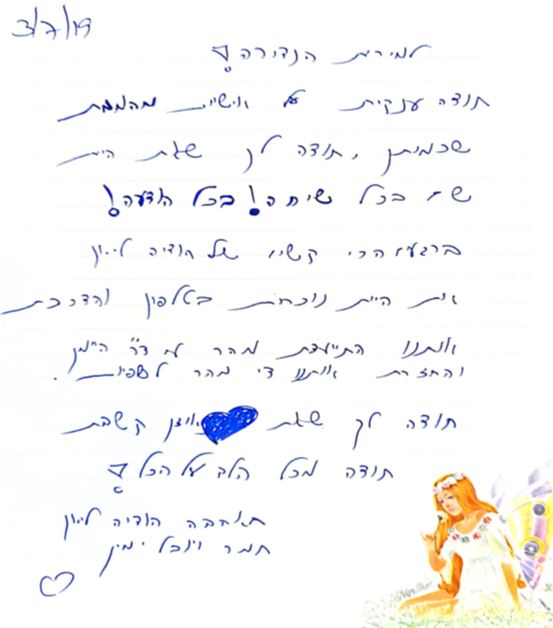 3/7/19
למירית הנדירה!
תודה ענקית על אישיות מהממת
שכמותך, תודה לך שאת היית
שם בכל שיחה! בכל הודעה!
ברגעים הכי קשים של הודיה ליאון
את היית נוכחת בטלפון והדרכת
אותנו התייעצת מהר עם ד"ר
והחזרת אותנו די מהר לשפיות.
תודה לך שאת אוזן קשבת
תודה מכל הלב על הכל!
הודיה ליאון
תמר ויובל ימין